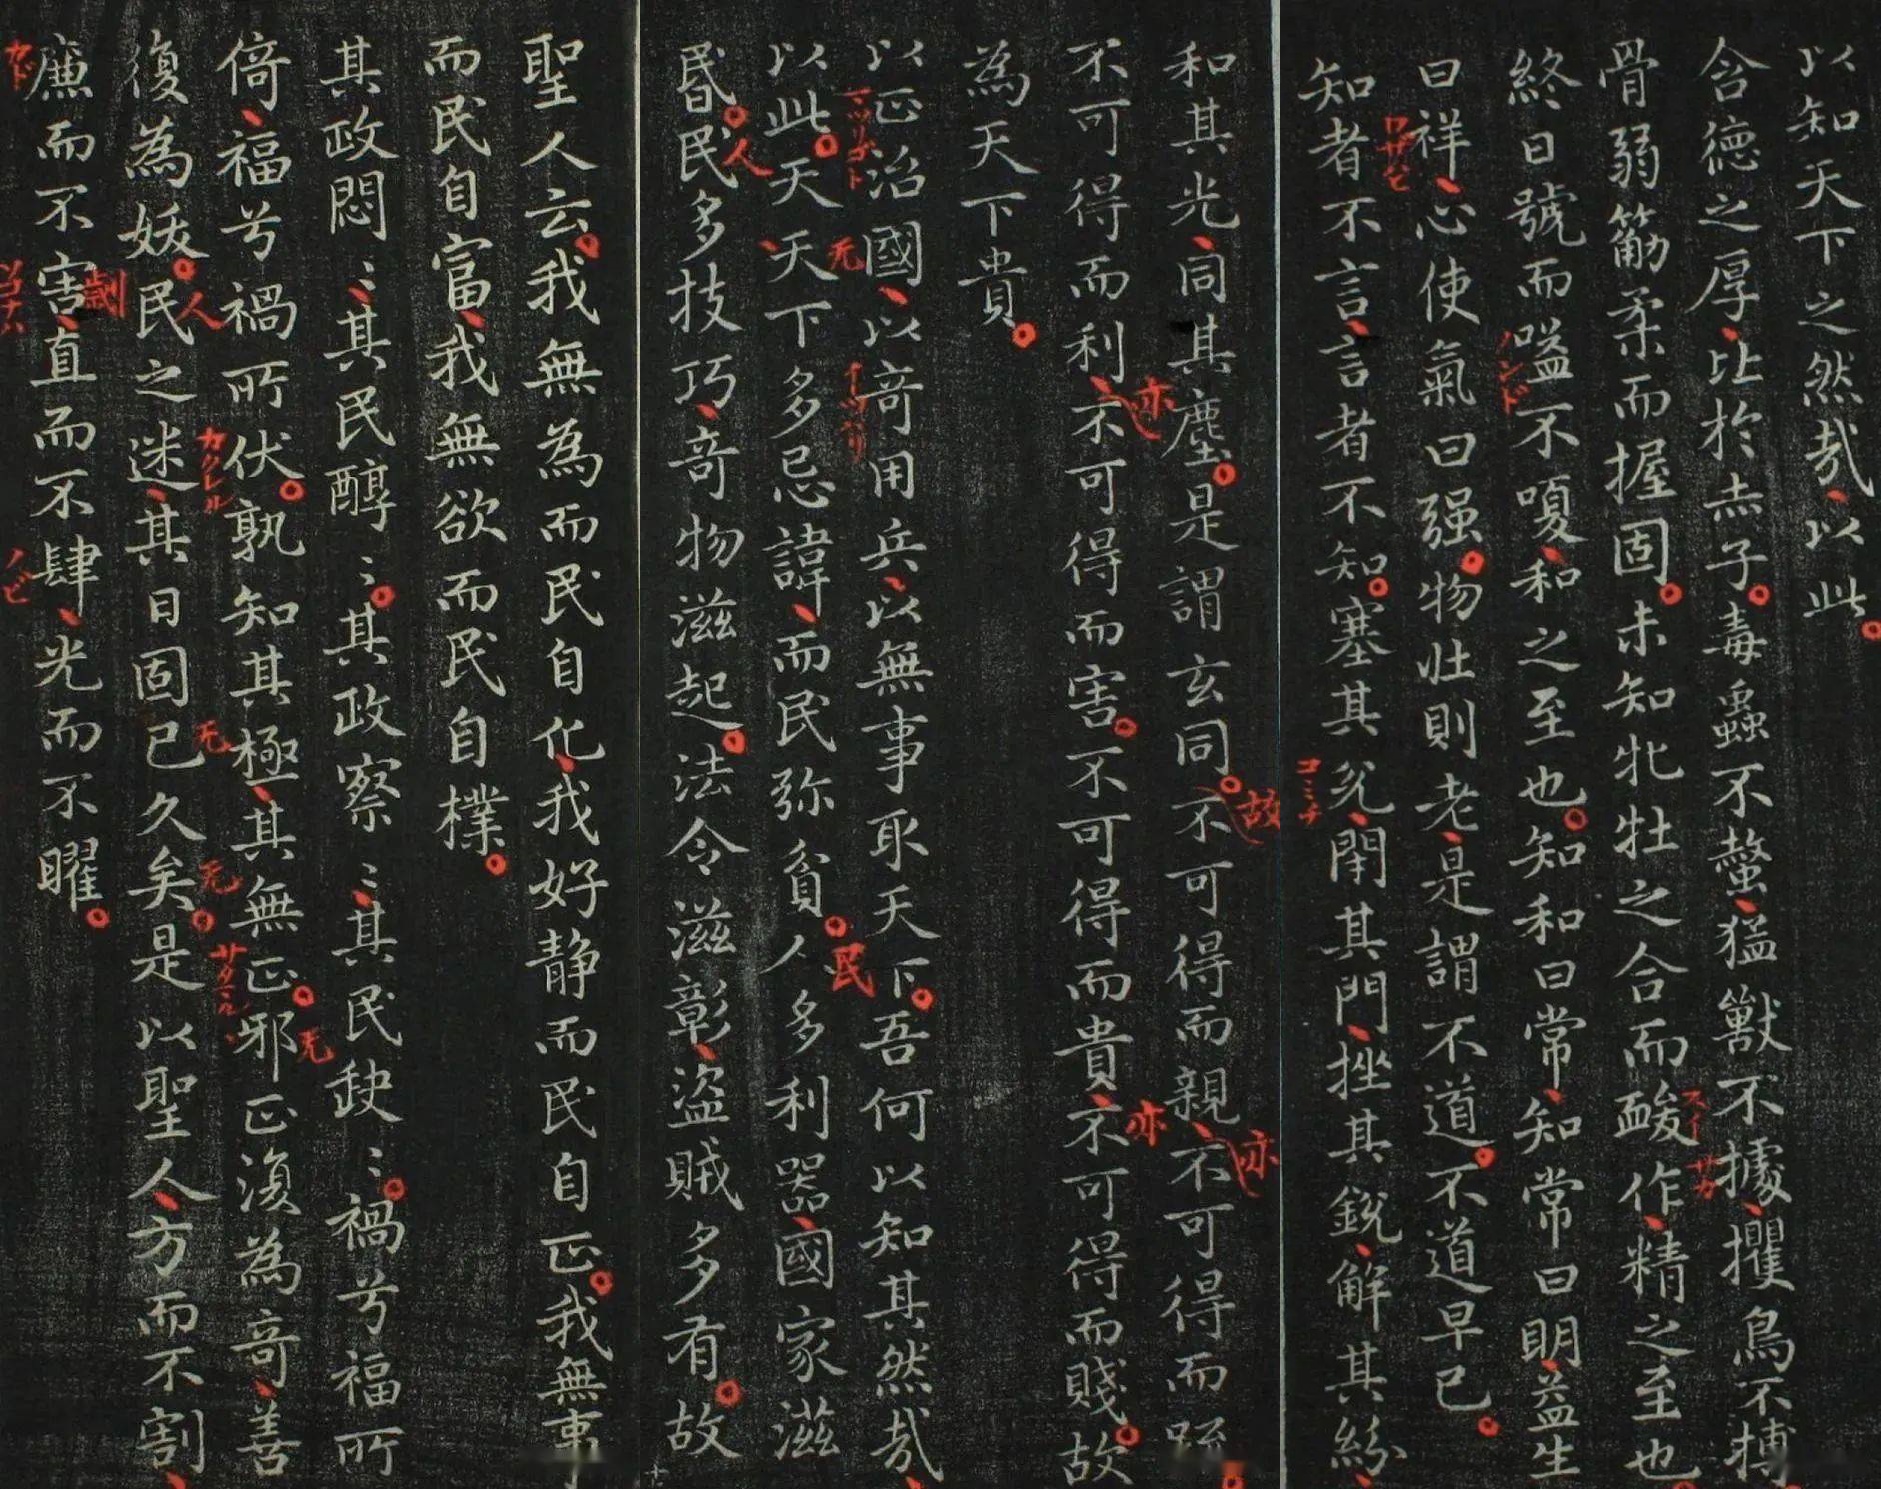 以知天下之然哉、以此。
含德之厚、比於赤子。毒蟲不螫、猛獸不據、攫鳥不搏、
骨弱筋柔而握固。未知牝牡之合而酸作、精之至也。
終日號而嗌不嗄、和之至也。知和曰常、知常曰明、益生
曰祥、心使氣曰强。物壯則老、是謂不道。不道早已。
知者不言、言者不知。塞其兌、閉其門、挫其銳、解其紛、
和其光、同其塵。是謂玄同。不可得而親、不可得而疏。
不可得而利、不可得而害。不可得而貴、不可得而賤。故
為天下貴。
以正治國、以奇用兵、以無事取天下。吾何以知其然哉、
以此。天、天下多忌諱、而民弥貧。人多利器、國家滋
昬。民多技巧、奇物滋起。法令滋彰、盜賊多有。故
聖人云。我無為而民自化、我好静而民自正。我無事
而民自富、我無欲而民自樸。
其政悶〻、其民醇〻。其政察〻、其民缺〻。禍兮福所
倚、福兮禍所伏。孰知其極、其無正。邪正復為奇、善
復為妖。民之迷、其日固已久矣。是以聖人、方而不割、
廉而不害、直而不肆、光而不曜。
コミチ
故
亦
亦
亦
无
民
人
无
カクレル
人
无
无
劌
カド